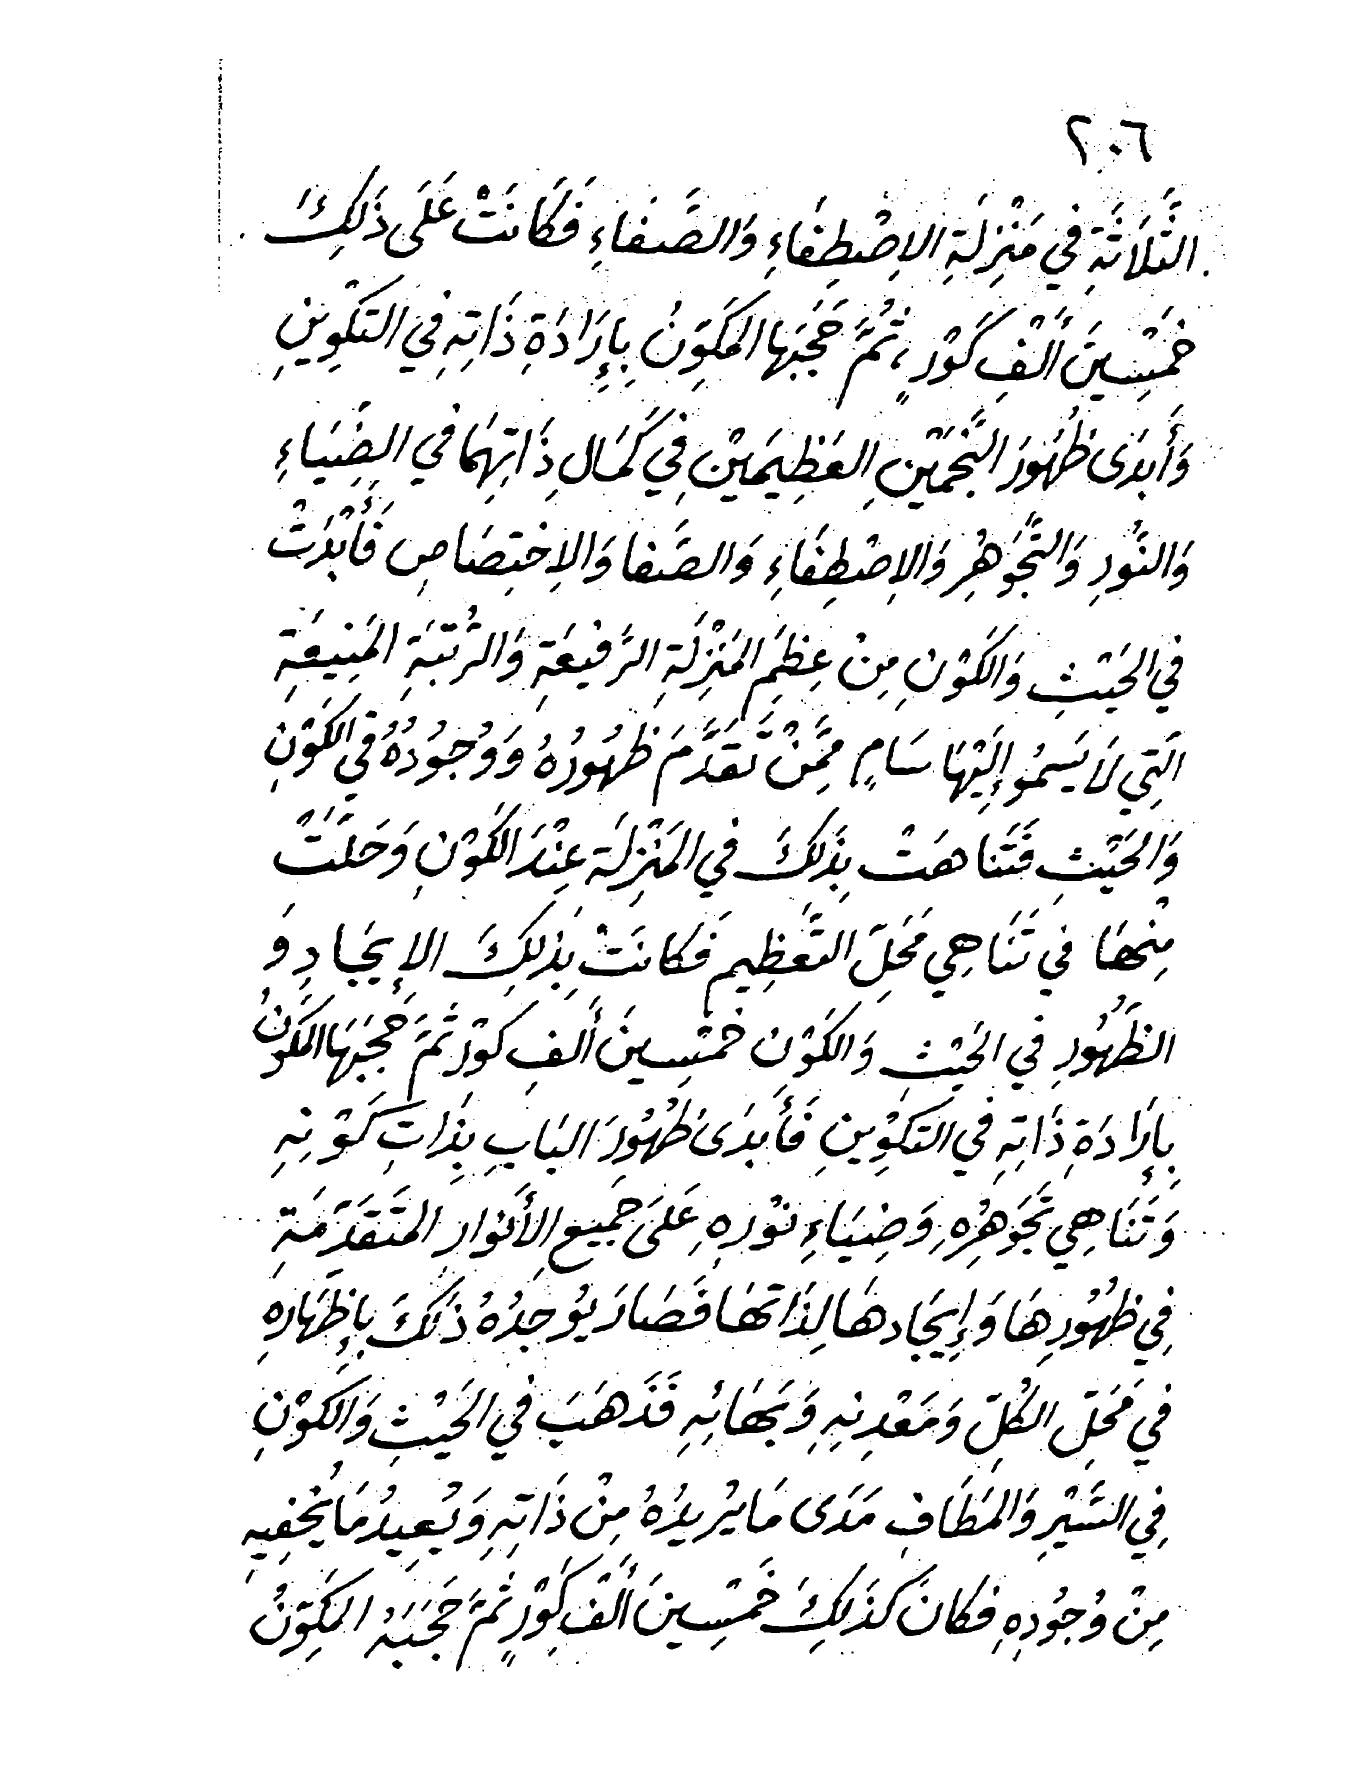 ٢٠٦
الثَّلَاثَةِ فِي مَنْزِلَةِ الاِصْطِفَاءِ وَالصَّفَاءِ فَكَانَتْ عَلَى ذَلِكَ
خَمْسِينَ أَلْفِ كَوْرٍ، ثُمَّ حَجَبَهَا المُكَوِّنُ بِإِرَادَةِ ذَاتِهِ فِي التَكْوِينِ
وَأَبدَى ظُهُورَ النَّجْمَيْنِ العَظِيمَيْنِ فِي كَمَالِ ذَاتِهِمَا فِي الضِيَاءِ
وَالنُّورِ وَالتَّجَوْهُرِ وَالاِصْطِفَاءِ وَالصَّفا وَالاِخْتِصَاصِ فَأَبْدَتْ
فِي الحَيْثِ وَالكَوْنِ مِنْ عِظَمِ المَنْزِلَةِ الرَّفِيعَةِ وَالرُّتْبَةِ المَنِيعَةِ
الَّتِي لَا يَسمُو إِلَيْهَا سَامٍ مِمَّنْ تَقَدَّمَ ظُهُورُهُ وَوُجُودُهُ فِي الكَوْنِ
وَالحَيْثِ فَتَنَاهَتْ بِذَلِكَ فِي المَنْزِلَةِ عِنْدَ الكَوْنِ وَحَلَّتْ
مِنْهَا فِي تَنَاهِي مَحَلِّ التَّعْظِيمِ فَكَانَتْ بِذَلِكَ الاِيجَادِ وَ
الظُهُورِ فِي الحَيْثِ وَالكَوْنِ خَمْسِينَ أَلْفِ كَوْرٍ ثُمَّ حَجَبَهَا المُكَوِّنُ
بِإِرَادَةِ ذَاتِهِ فِي التَكْوِينِ فَأَبدَى ظُهُورَ البَابِ بِذَاتِ كَوْنِهِ
وَتَنَاهِي تَجَوْهُرِهِ وَضِيَاءِ نُورِهِ عَلَى جَمِيعِ الأَنوَارِ المُتَقَدِّمَةِ
فِي ظُهُورِهَا وَإِيجَادِهَا لِذَاتِهَا فَصَارَ يُوجِدُهُ ذَلِكَ بِإِظهَارِهِ
فِي مَحَلِّ الكُلِّ وَمَعْدِنِهِ وَبَهَائِهِ فَذَهَبَ فِي الحَيْثِ وَالكَوْنِ
فِي السَّيْرِ وَالمَطَافِ مَدَى مَا يُرِيدُهُ مِنْ ذَاتِهِ وَيُعِيدُ مَا يُخْفِيهِ
مِنْ وُجُودِهِ فَكَانَ كَذَلِكَ خَمْسِينَ أَلْفَ كَوْرٍ ثُمَّ حَجَبَهُ المُكَوِّنُ